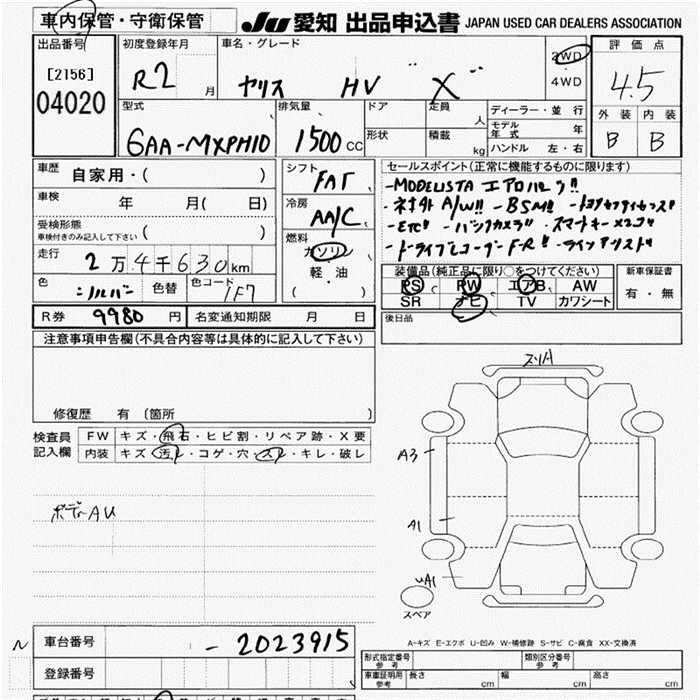 車内保管・守衛保管 JU 愛知 出品申込書 JAPAN USED CAR DEALERS ASSOCIATION
出品番号 [2156] 04020
初度登録年月 R2 月
車名・グレード ヤリス HV "X"
2WD・4WD
評価点 4.5
外装 B 内装 B
型式 6AA-MXPH10
排気量 1500 CC
ドア 形状
定員 人 積載 kg
ディーラー・並行
モデル年式 年
ハンドル 左・右
車歴 自家用・( )
車検 年 月( 日)
受検形態 車検付きのみ記入して下さい ( )
走行 2万4千630km
色 シルバー 色替 色コード 1F7
シフト FAT
冷房 AA/C
燃料 ガソリン 軽・油 ( )
セールスポイント(正常に機能するものに限ります)
-MODELISTA エアロパーツ!!
A/W!! -BSM!!
-ETC!! -バックカメラ!! スマートキー×2コ!!
-ドライブレコーダーF・R!!
装備品(純正品に限り○をつけてください)
PS PW エアB. AW
SR ナビ TV カワシート
新車保証書 有・無
後日品
R券 9980 円 名変通知期限 月 日
注意事項申告欄(不具合内容等は具体的に記入して下さい)
修復歴 有 〔箇所 〕
検査員記入欄 FW キズ・飛石・ヒビ割・リペア跡・X要
内装 キズ・汚レ・コゲ・穴・スレ・キレ・破レ
ボデーAU
スリA
A3
A1
UA1
スペア
N 車台番号 -2023915
登録番号
A-キズ E-エクボ U-凹み W-補修跡 S-サビ C-腐食 XX-交換済
形式指定番号 参考 類別区分番号 参考
車庫証明用 参考 長さ cm 幅 cm 高さ cm